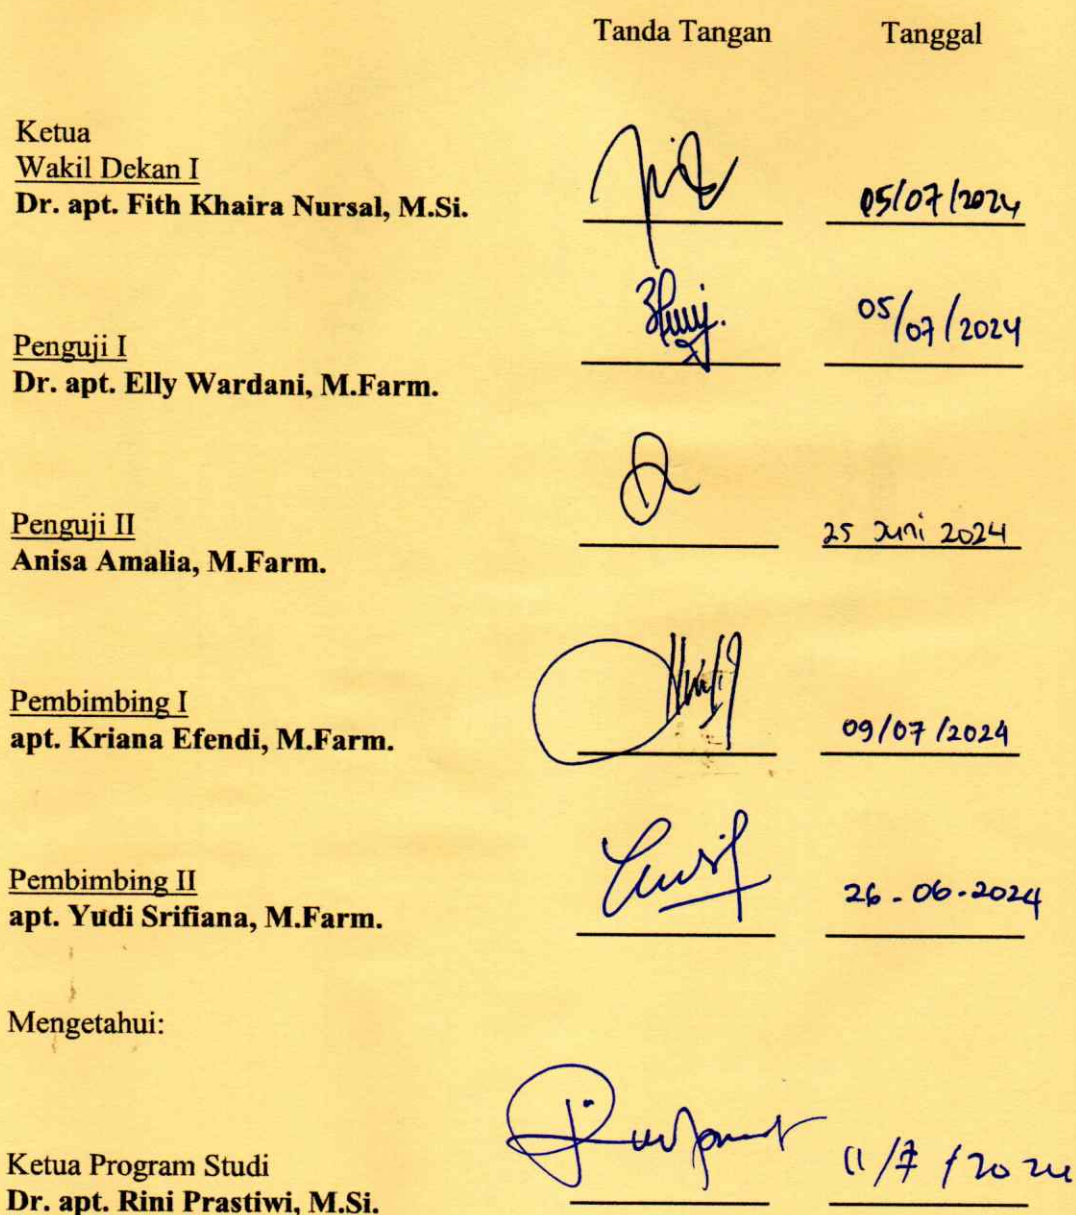 Tanda Tangan Tanggal
Ketua
Wakil Dekan I
Dr. apt. Fith Khaira Nursal, M.Si. 05/07/2024
Penguji I 05/07/2024
Dr. apt. Elly Wardani, M.Farm.
Penguji II 25 Juni 2024
Anisa Amalia, M.Farm.
Pembimbing I
apt. Kriana Efendi, M.Farm. 09/07/2024
Pembimbing II
apt. Yudi Srifiana, M.Farm. 26-06-2024
Mengetahui:
Ketua Program Studi 11/7/2024
Dr. apt. Rini Prastiwi, M.Si.